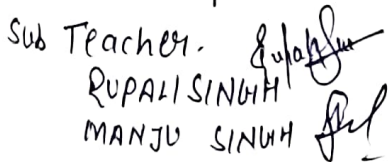 Sub Teacher.
RUPALI SINGH
MANJU SINGH